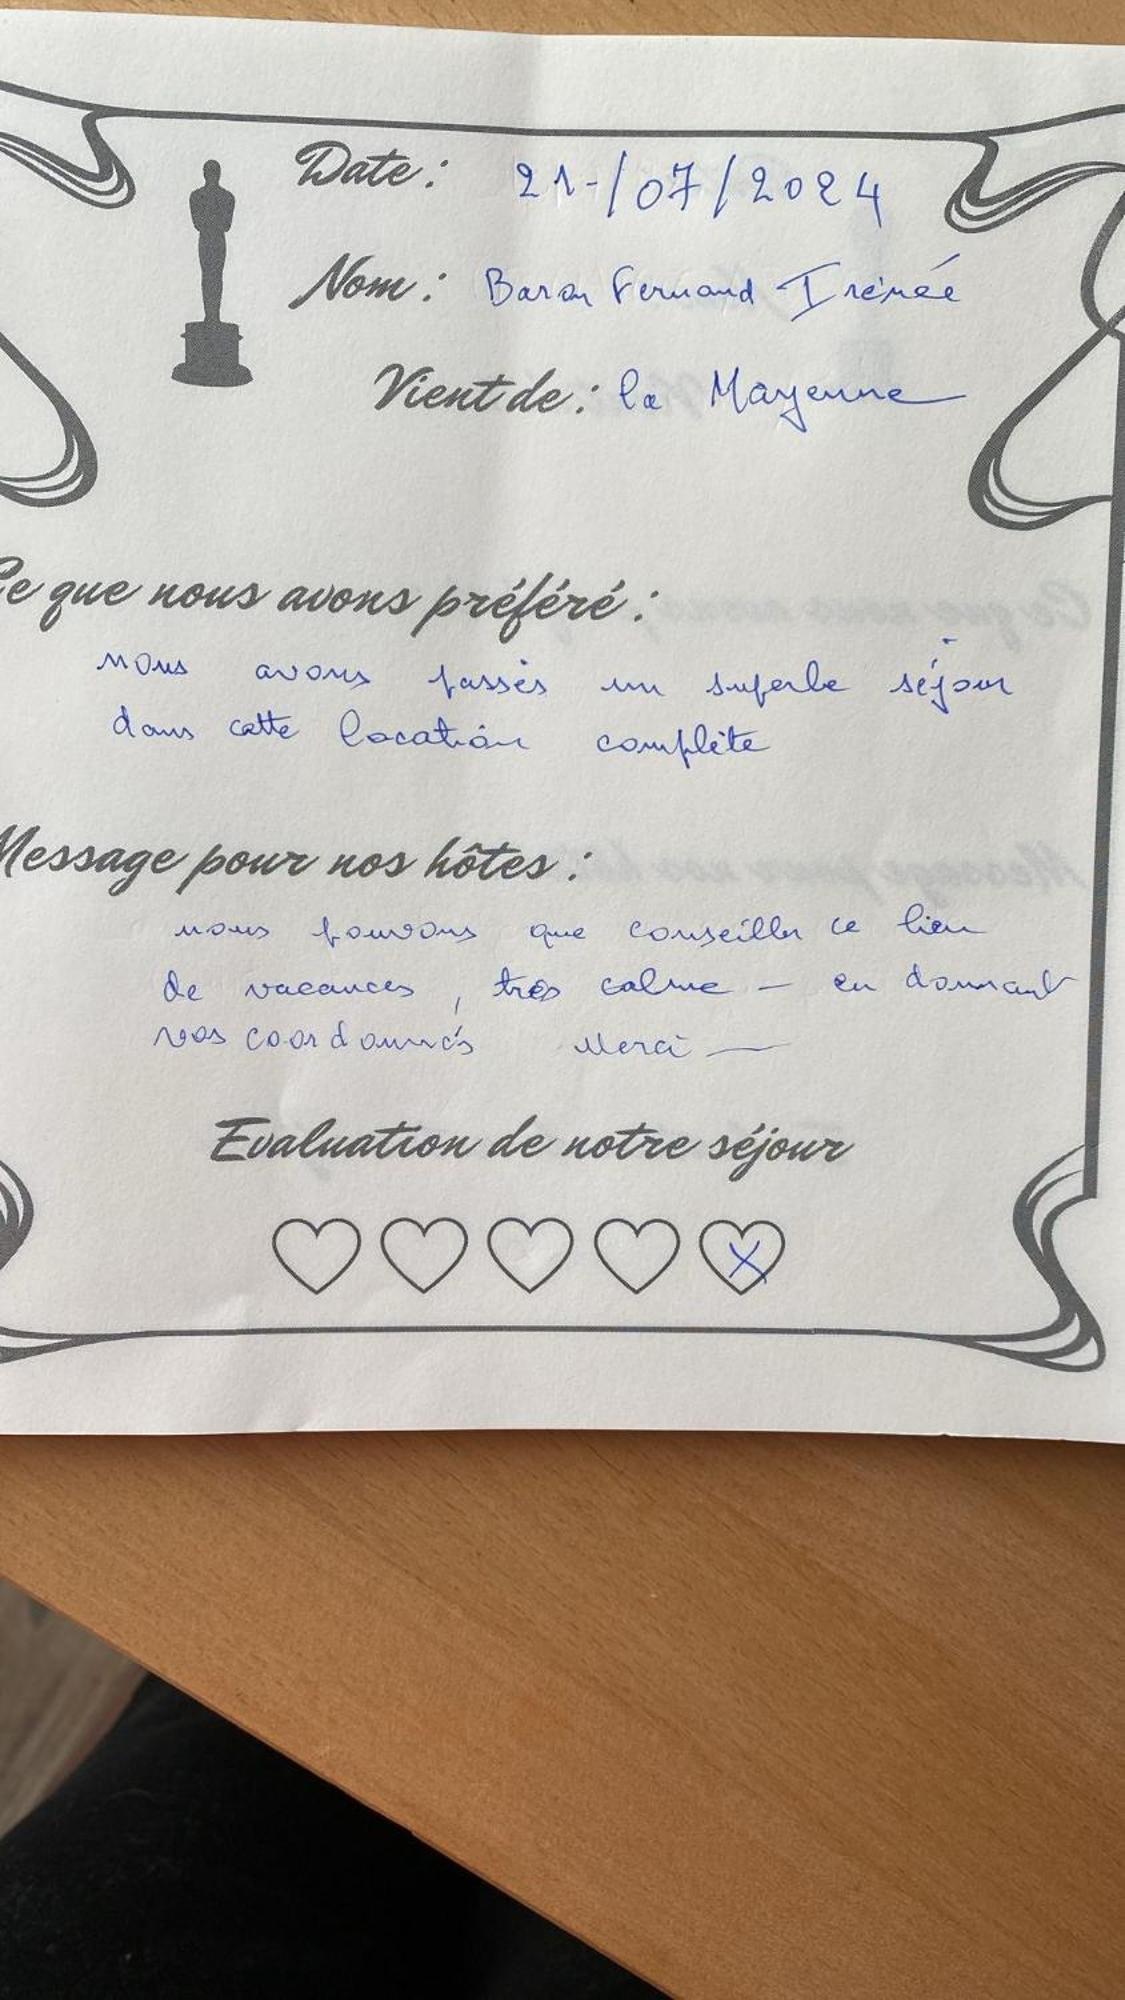 Date : 21-/07/2024
Nom : Baron Fernand Irénée
Vient de : la Mayenne
Ce que nous avons préféré :
nous avons passés un superbe séjour
dans cette location complète
Message pour nos hôtes :
nous pouvons que conseiller ce lieu
de vacances , très calme - en donnant
vos coordonnés Merci —
Evaluation de notre séjour
X